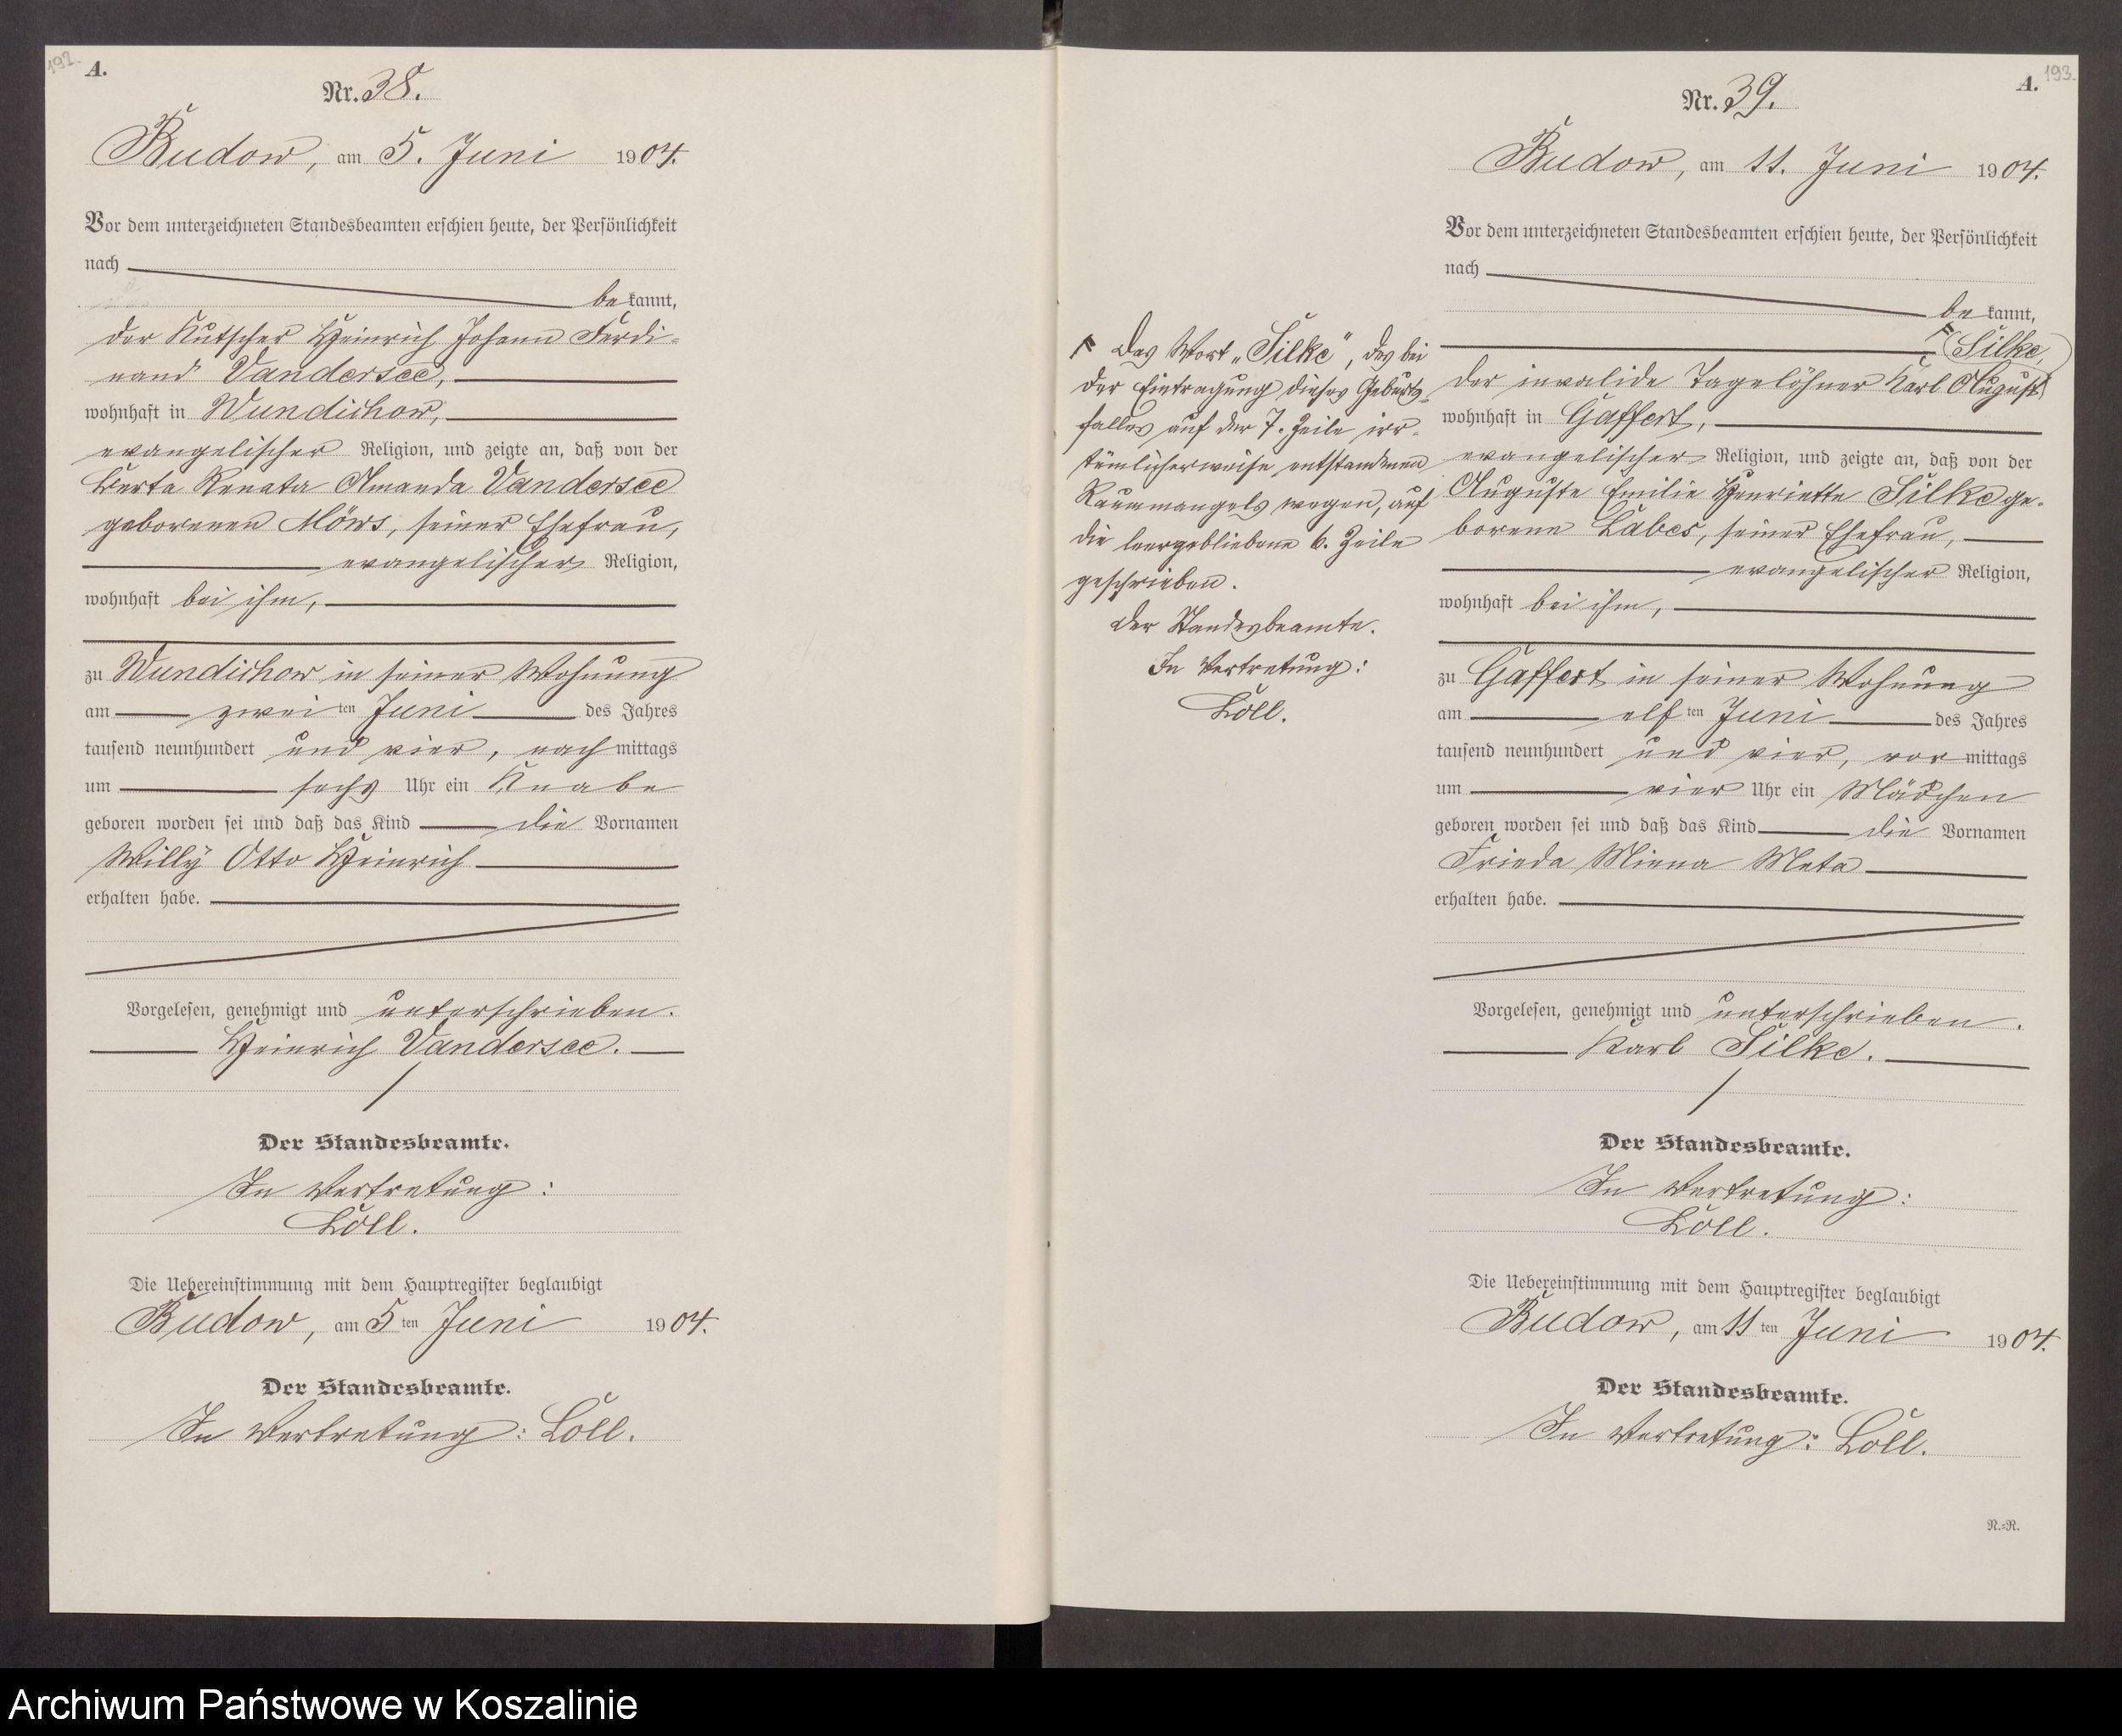 192.
A.
Nr. 38.
Budow, am 5. Juni 1904.
Vor dem unterzeichneten Standesbeamten erschien heute, der Persönlichkeit
nach
be kannt,
der Kutscher Heinrich Johann Ferdi-
nand Vandersee,
wohnhaft in Wundichow,
evangelischer Religion, und zeigte an, daß von der
Berta Renate Amanda Vandersee
geborenen Möws, seiner Ehefrau,
evangelischer Religion,
wohnhaft bei ihm,
zu Wundichow in seiner Wohnung
am zwei ten Juni des Jahres
tausend neunhundert und vier, nach mittags
um sechs Uhr ein Knabe
geboren worden sei und daß das Kind die Vornamen
Willy Otto Heinrich
erhalten habe.
Vorgelesen, genehmigt und unterschrieben.
Heinrich Vandersee.
Der Standesbeamte.
In Vertretung:
Löll.
Die Uebereinstimmung mit dem Hauptregister beglaubigt
Budow, am 5 ten Juni 1904.
Der Standesbeamte.
In Vertretung: Löll.
193.
A.
Nr. 39.
Budow, am 11. Juni 1904.
Vor dem unterzeichneten Standesbeamten erschien heute, der Persönlichkeit
nach
be kannt,
Silke,
der invalide Tagelöhner Karl August
wohnhaft in Gaffert,
evangelischer Religion, und zeigte an, daß von der
Auguste Emilie Henriette Silke ge-
borene Labes, seiner Ehefrau,
evangelischer Religion,
wohnhaft bei ihm,
zu Gaffert in seiner Wohnung
am elf ten Juni des Jahres
tausend neunhundert und vier, vor mittags
um vier Uhr ein Mädchen
geboren worden sei und daß das Kind die Vornamen
Frieda Minna Meta
erhalten habe.
Vorgelesen, genehmigt und unterschrieben.
Karl Silke.
Der Standesbeamte.
In Vertretung:
Löll.
Die Uebereinstimmung mit dem Hauptregister beglaubigt
Budow, am 11 ten Juni 1904.
Der Standesbeamte.
In Vertretung: Löll.
R.=R.
Das Wort „Silke", das bei
der Eintragung dieses Geburts-
falles auf der 7. Zeile irr-
tümlicherweise entstandenen
Raummangels wegen, auf
die leergebliebene 6. Zeile
geschrieben.
Der Standesbeamte.
In Vertretung:
Löll.
Archiwum Państwowe w Koszalinie